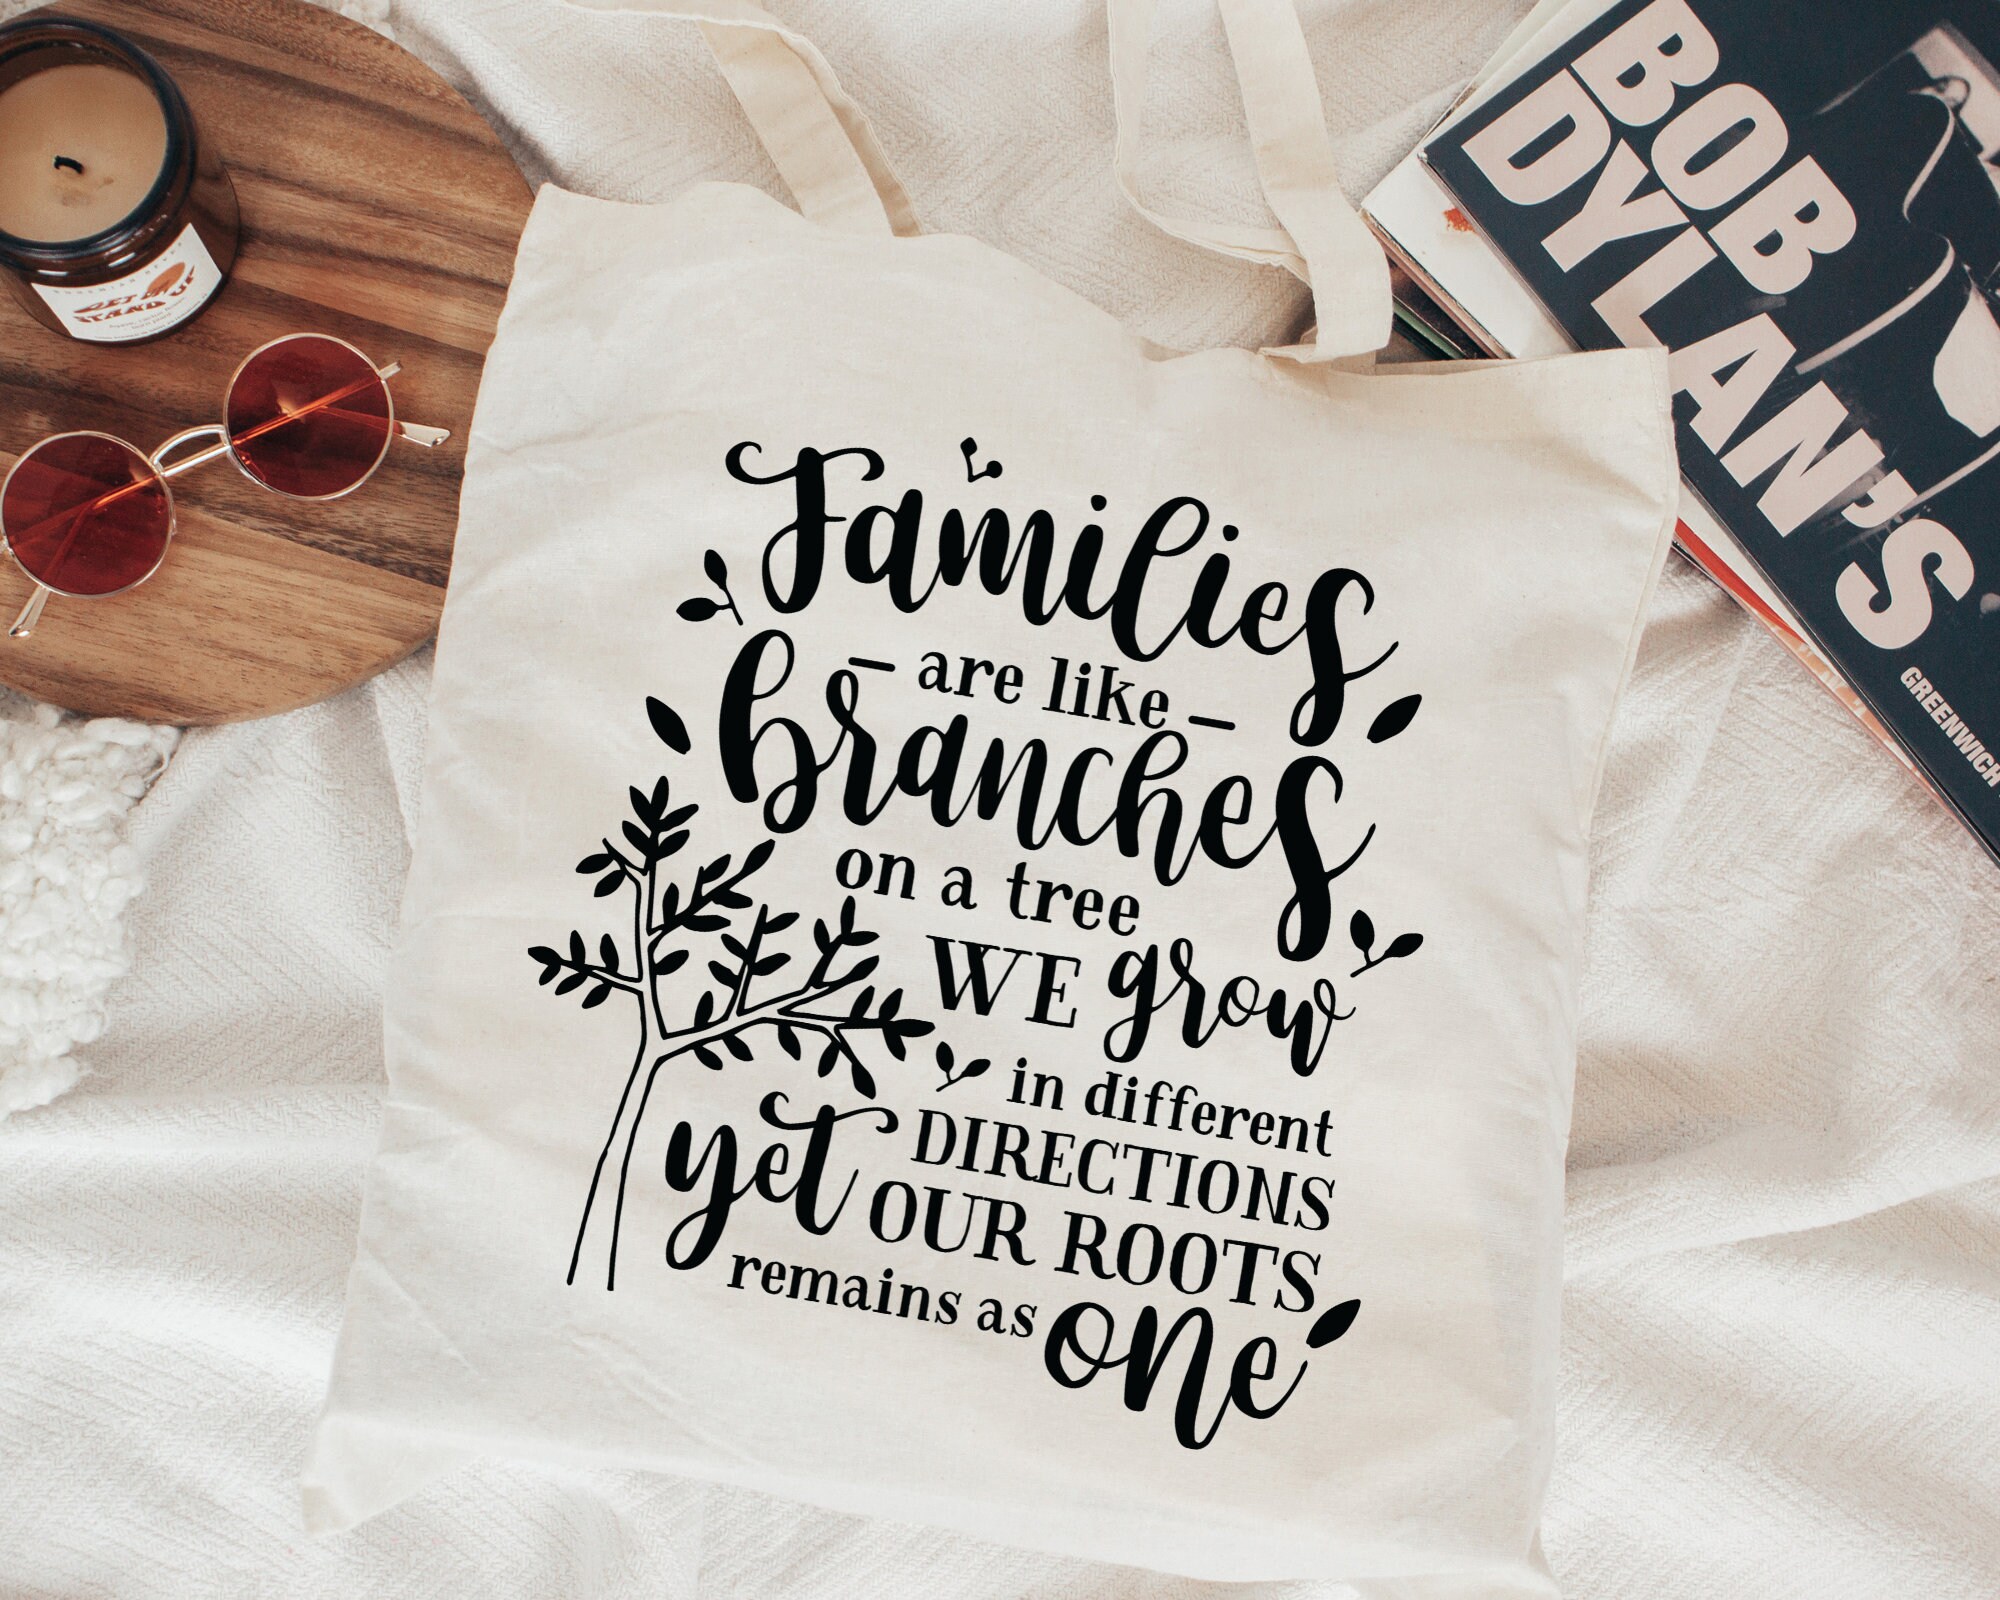 BOB
DYLAN'S
GREENWICH
Families
– are like –
branches
on a tree
WE grow
in different
yet DIRECTIONS
OUR ROOTS
remains as one